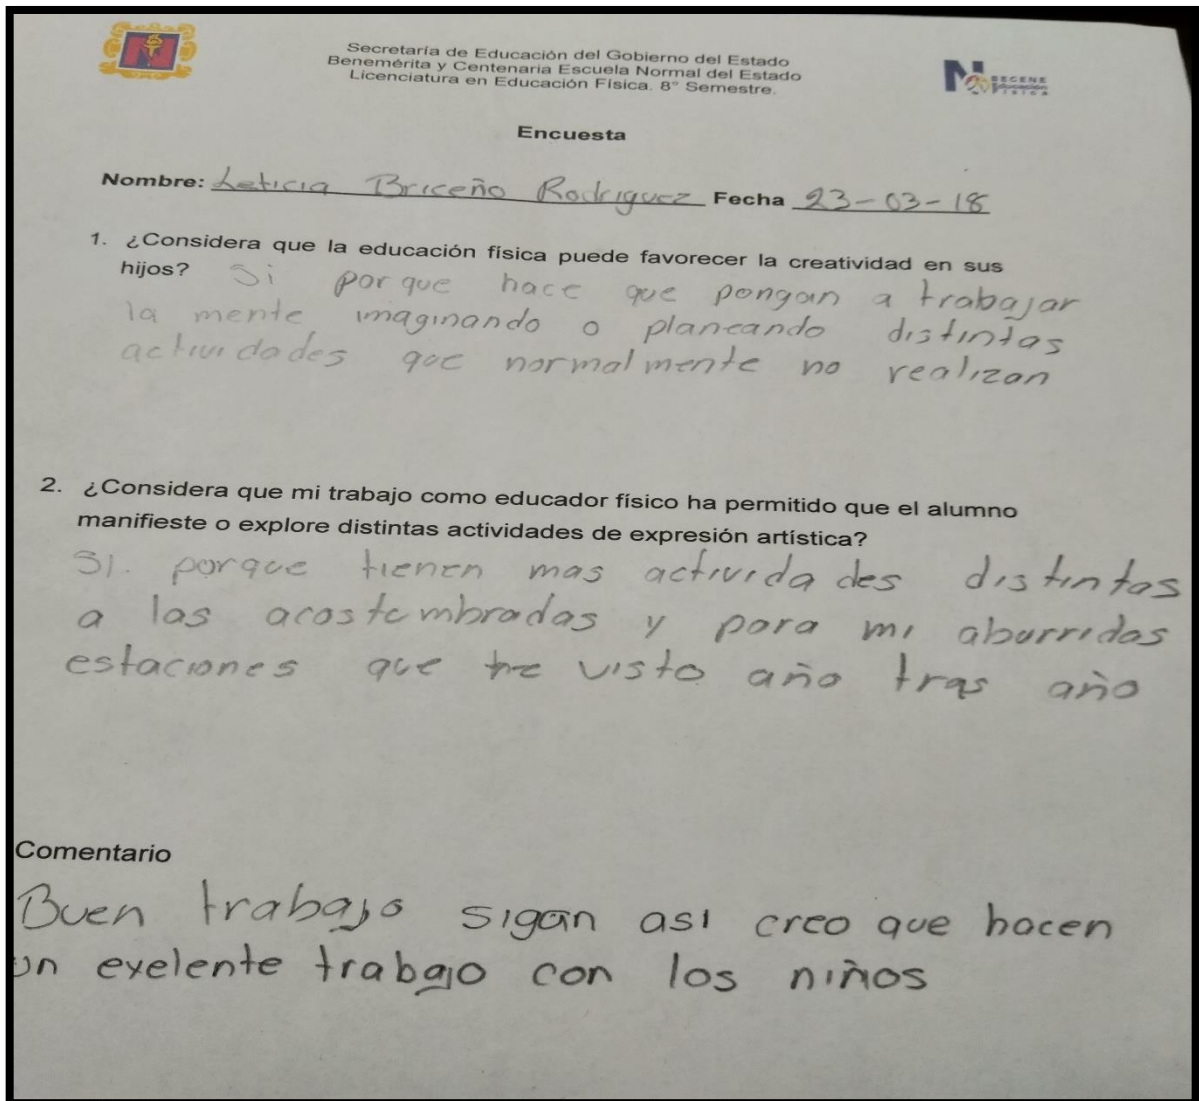 Secretaría de Educación del Gobierno del Estado
Benemérita y Centenaria Escuela Normal del Estado
Licenciatura en Educación Física. 8° Semestre.
BECENE
Educación
FISICA
Encuesta
Nombre: Leticia Briceño Rodriguez Fecha 23-03-18
1. ¿Considera que la educación física puede favorecer la creatividad en sus
hijos? Si por que hace que pongan a trabajar
la mente imaginando o planeando distintas
actividades que normalmente no realizan
2. ¿Considera que mi trabajo como educador físico ha permitido que el alumno
manifieste o explore distintas actividades de expresión artística?
SI. porque tienen mas actividades distintas
a las acostumbradas y para mi aburridas
estaciones que he visto año tras año
Comentario
Buen trabajo sigan asi creo que hacen
un exelente trabajo con los niños